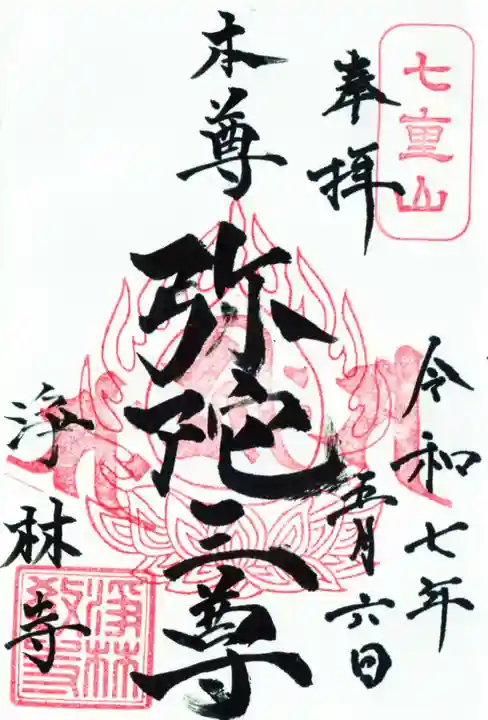 七重山
奉拝
令和七年
五月六日
本尊
弥陀三尊
浄林寺